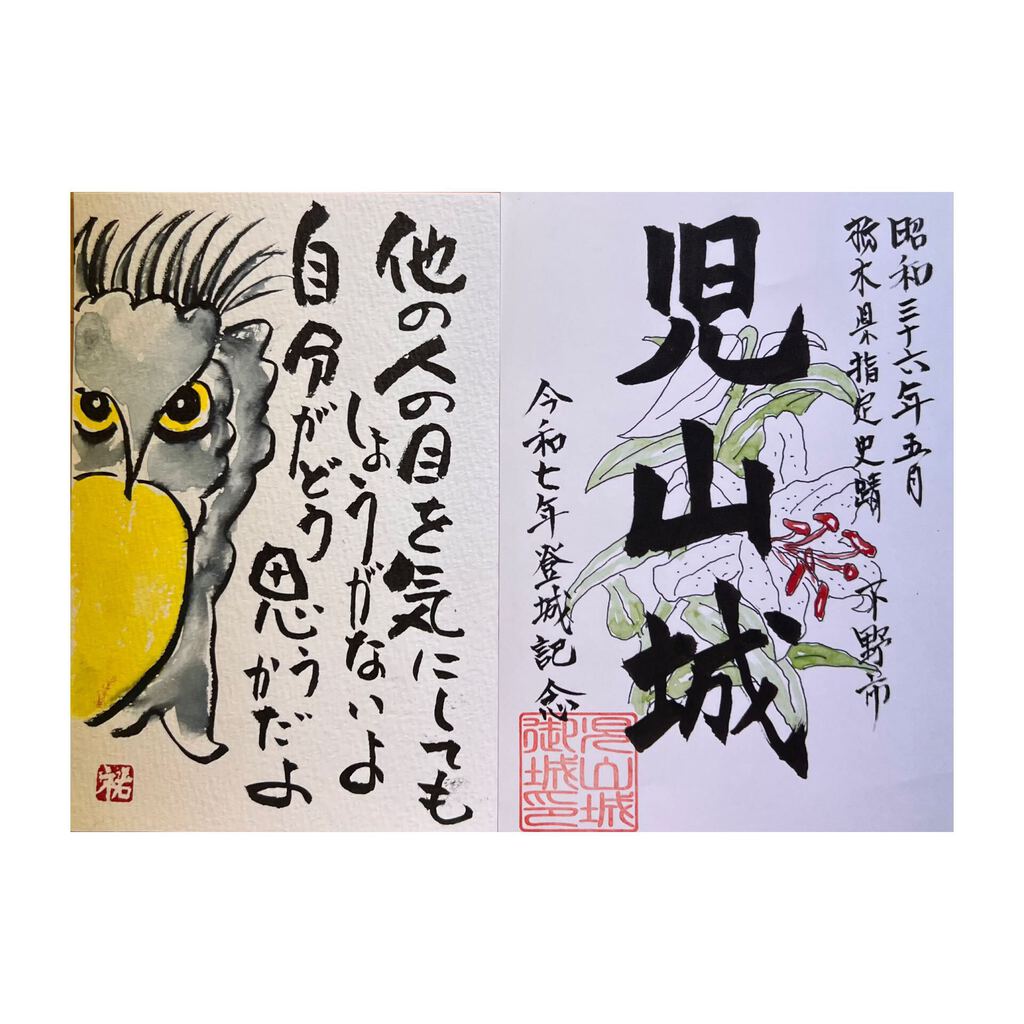 他の人の目を気にしても
しょうがないよ
自分がどう思うかだよ
祐
昭和三十六年五月
栃木県指定史蹟 下野市
児山城
令和七年登城記念
児山城
御城印